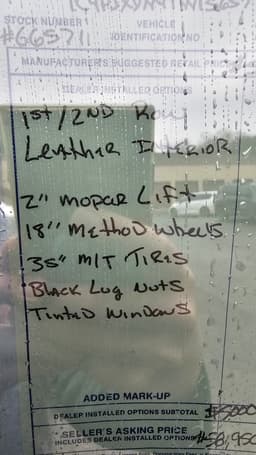 STOCK NUMBER
VEHICLE
IDENTIFICATION NO
#665711
MANUFACTURER'S SUGGESTED RETAIL
DEALER INSTALLED OPTIONS
1st / 2ND Row
Leather INTERIOR
2" mopar Lift
18" Method wheels
35" M/T TIRES
Black Lug Nuts
Tinted Windows
ADDED MARK-UP
DEALER INSTALLED OPTIONS SUBTOTAL
* SELLER'S ASKING PRICE
INCLUDES DEALER INSTALLED OPTIONS